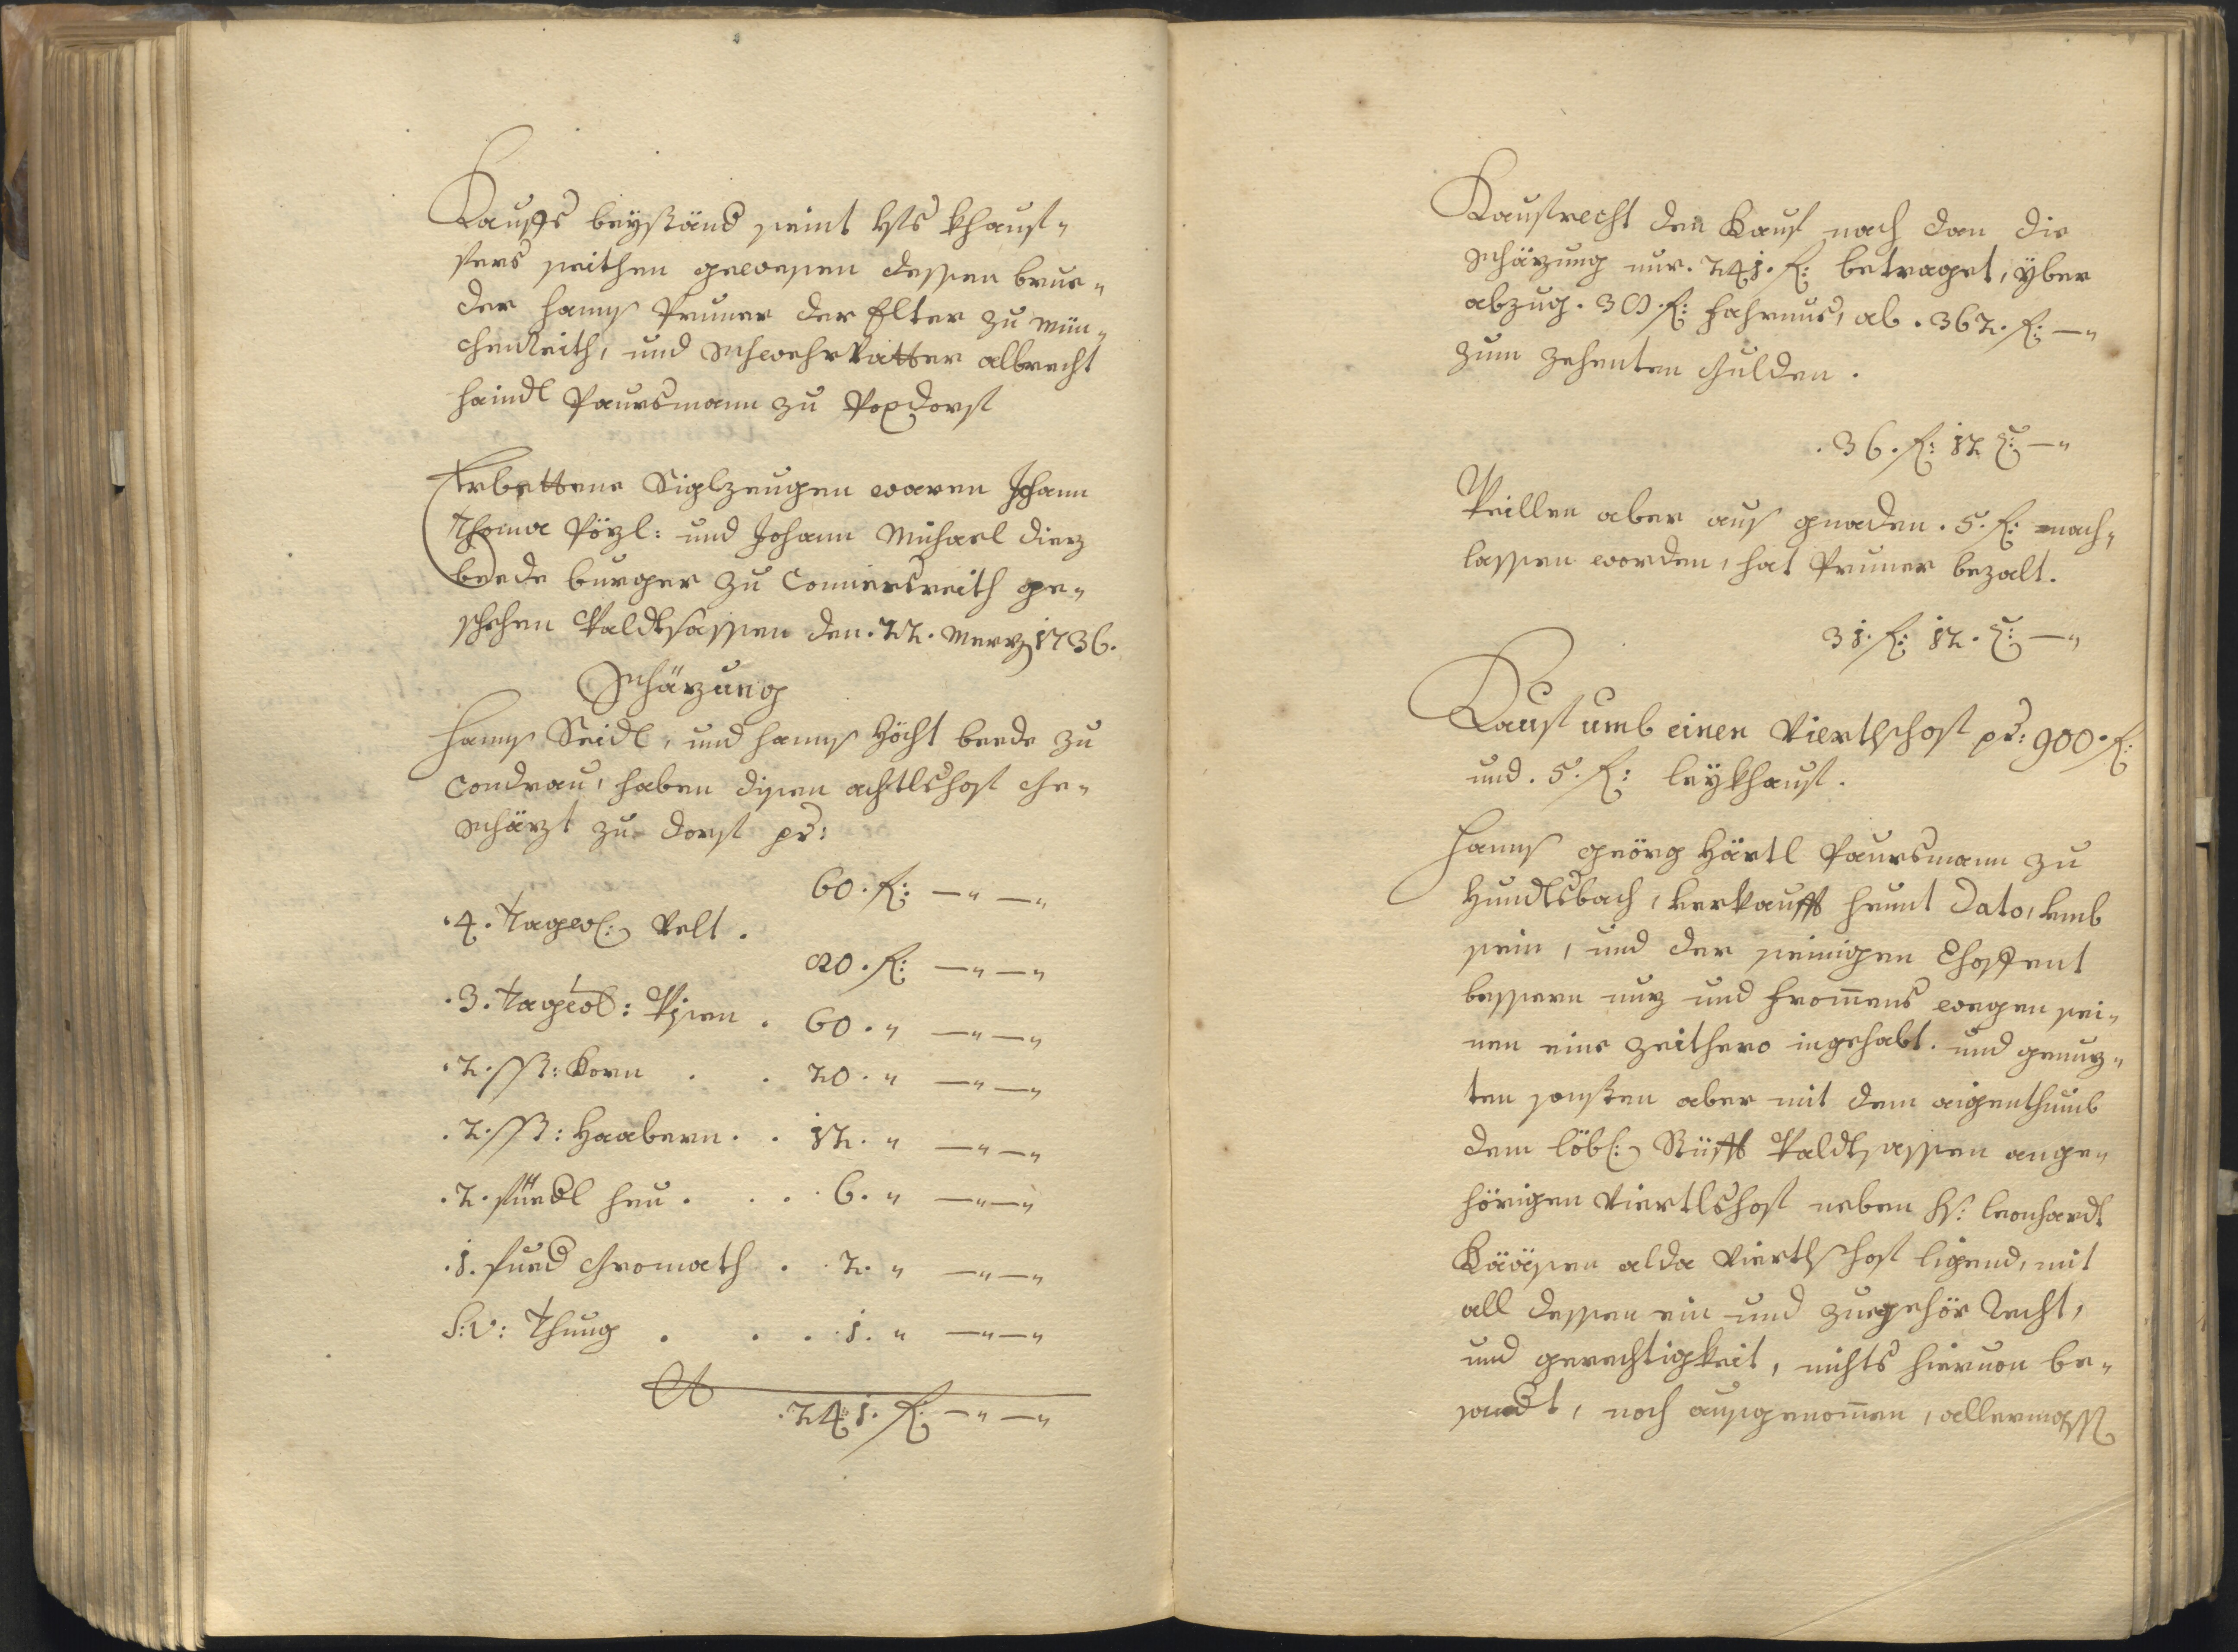 Kauffs beyständ seint ufs Khauf¬
fers seithen gewesen dessen brue¬
der Hannß Pruner der Elter zu Mün¬
chenreith, und Schwehrvatter Albrecht
Haindl Paursmann zu Poxdorf
Erbettene Siglzeugen waren Johann
Thoma Pözl: und Johann Michael Dierz
beede burger zu Connersreith ge¬
schehen Waldtsassen den .22. Merz 1736.
Schäzung
Hannß Seidl, und Hannß Höcht beede zu
Condrau, haben disen achtlshof ge¬
schäzt zu dorf pr:
60. f: —" —"
.4. Tagw: Velt .
80. f: —" —"
.3. Tagw: Wisen . 60. " —" —"
.2. ß: Korn . . 20. " —" —"
.2. ß: Haabern . . 12. " —" —"
.2. füedl heu . . . 6. " —" —"
.1. fued Gromath . . 2. " —" —"
S:V: Thung . . . 1. " —" —"
.241. f: —" —"
Kaufrecht den Kauf nach dan die
Schäzung nur .241. f: betraget, yber
abzug .30. f: Fahrnus, ab .362. f: —"
zum zehenten gulden .
.36. f: 12 x: —"
Weillen aber aus gnaden .5. f: nach¬
lassen worden, hat Pruner bezalt.
31. f: 12. x: —"
Kauf umb einen Viertlshof pr: 900. f:
und .5. f: leykhauf.
Hannß Geörg Härtl Paursmann zu
Hundtsbach, verkaufft heunt Dato, umb
sein, und der seinigen Ehoffent
bessern nuz und frommens wegen sei¬
nen eine zeithero ingehabt. und genuz¬
ten sonsten aber mit dem aigenthumb
dem löbl: Stüfft Waldtsassen ange¬
hörigen Viertlshof neben Hs: Leonhardt
alda Viertlshof ligend, mit
all dessen ein und zuegehör Recht,
und gerechtigkeit, nichts hieruon be¬
sondt, noch ausgenommen, allermassen